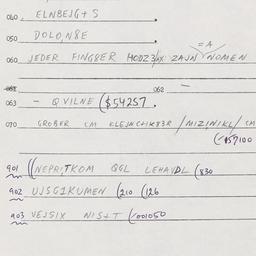 040. ELNBEJG+S
050 DOLO,N8E
= A
060 JEDER FINGBER HODZ3/XX ZAJN NOMEN
062 —
063 — QVILNE ($54257.
070 GROBER CM KLEJNCHK83R /MIZINIKL/ CM
($157100
901 ((NEPRITKOM QGL LEHAVDL (830
902 UJSG1KUMEN (210 (126
903 VEJSIX NIS+T (001050